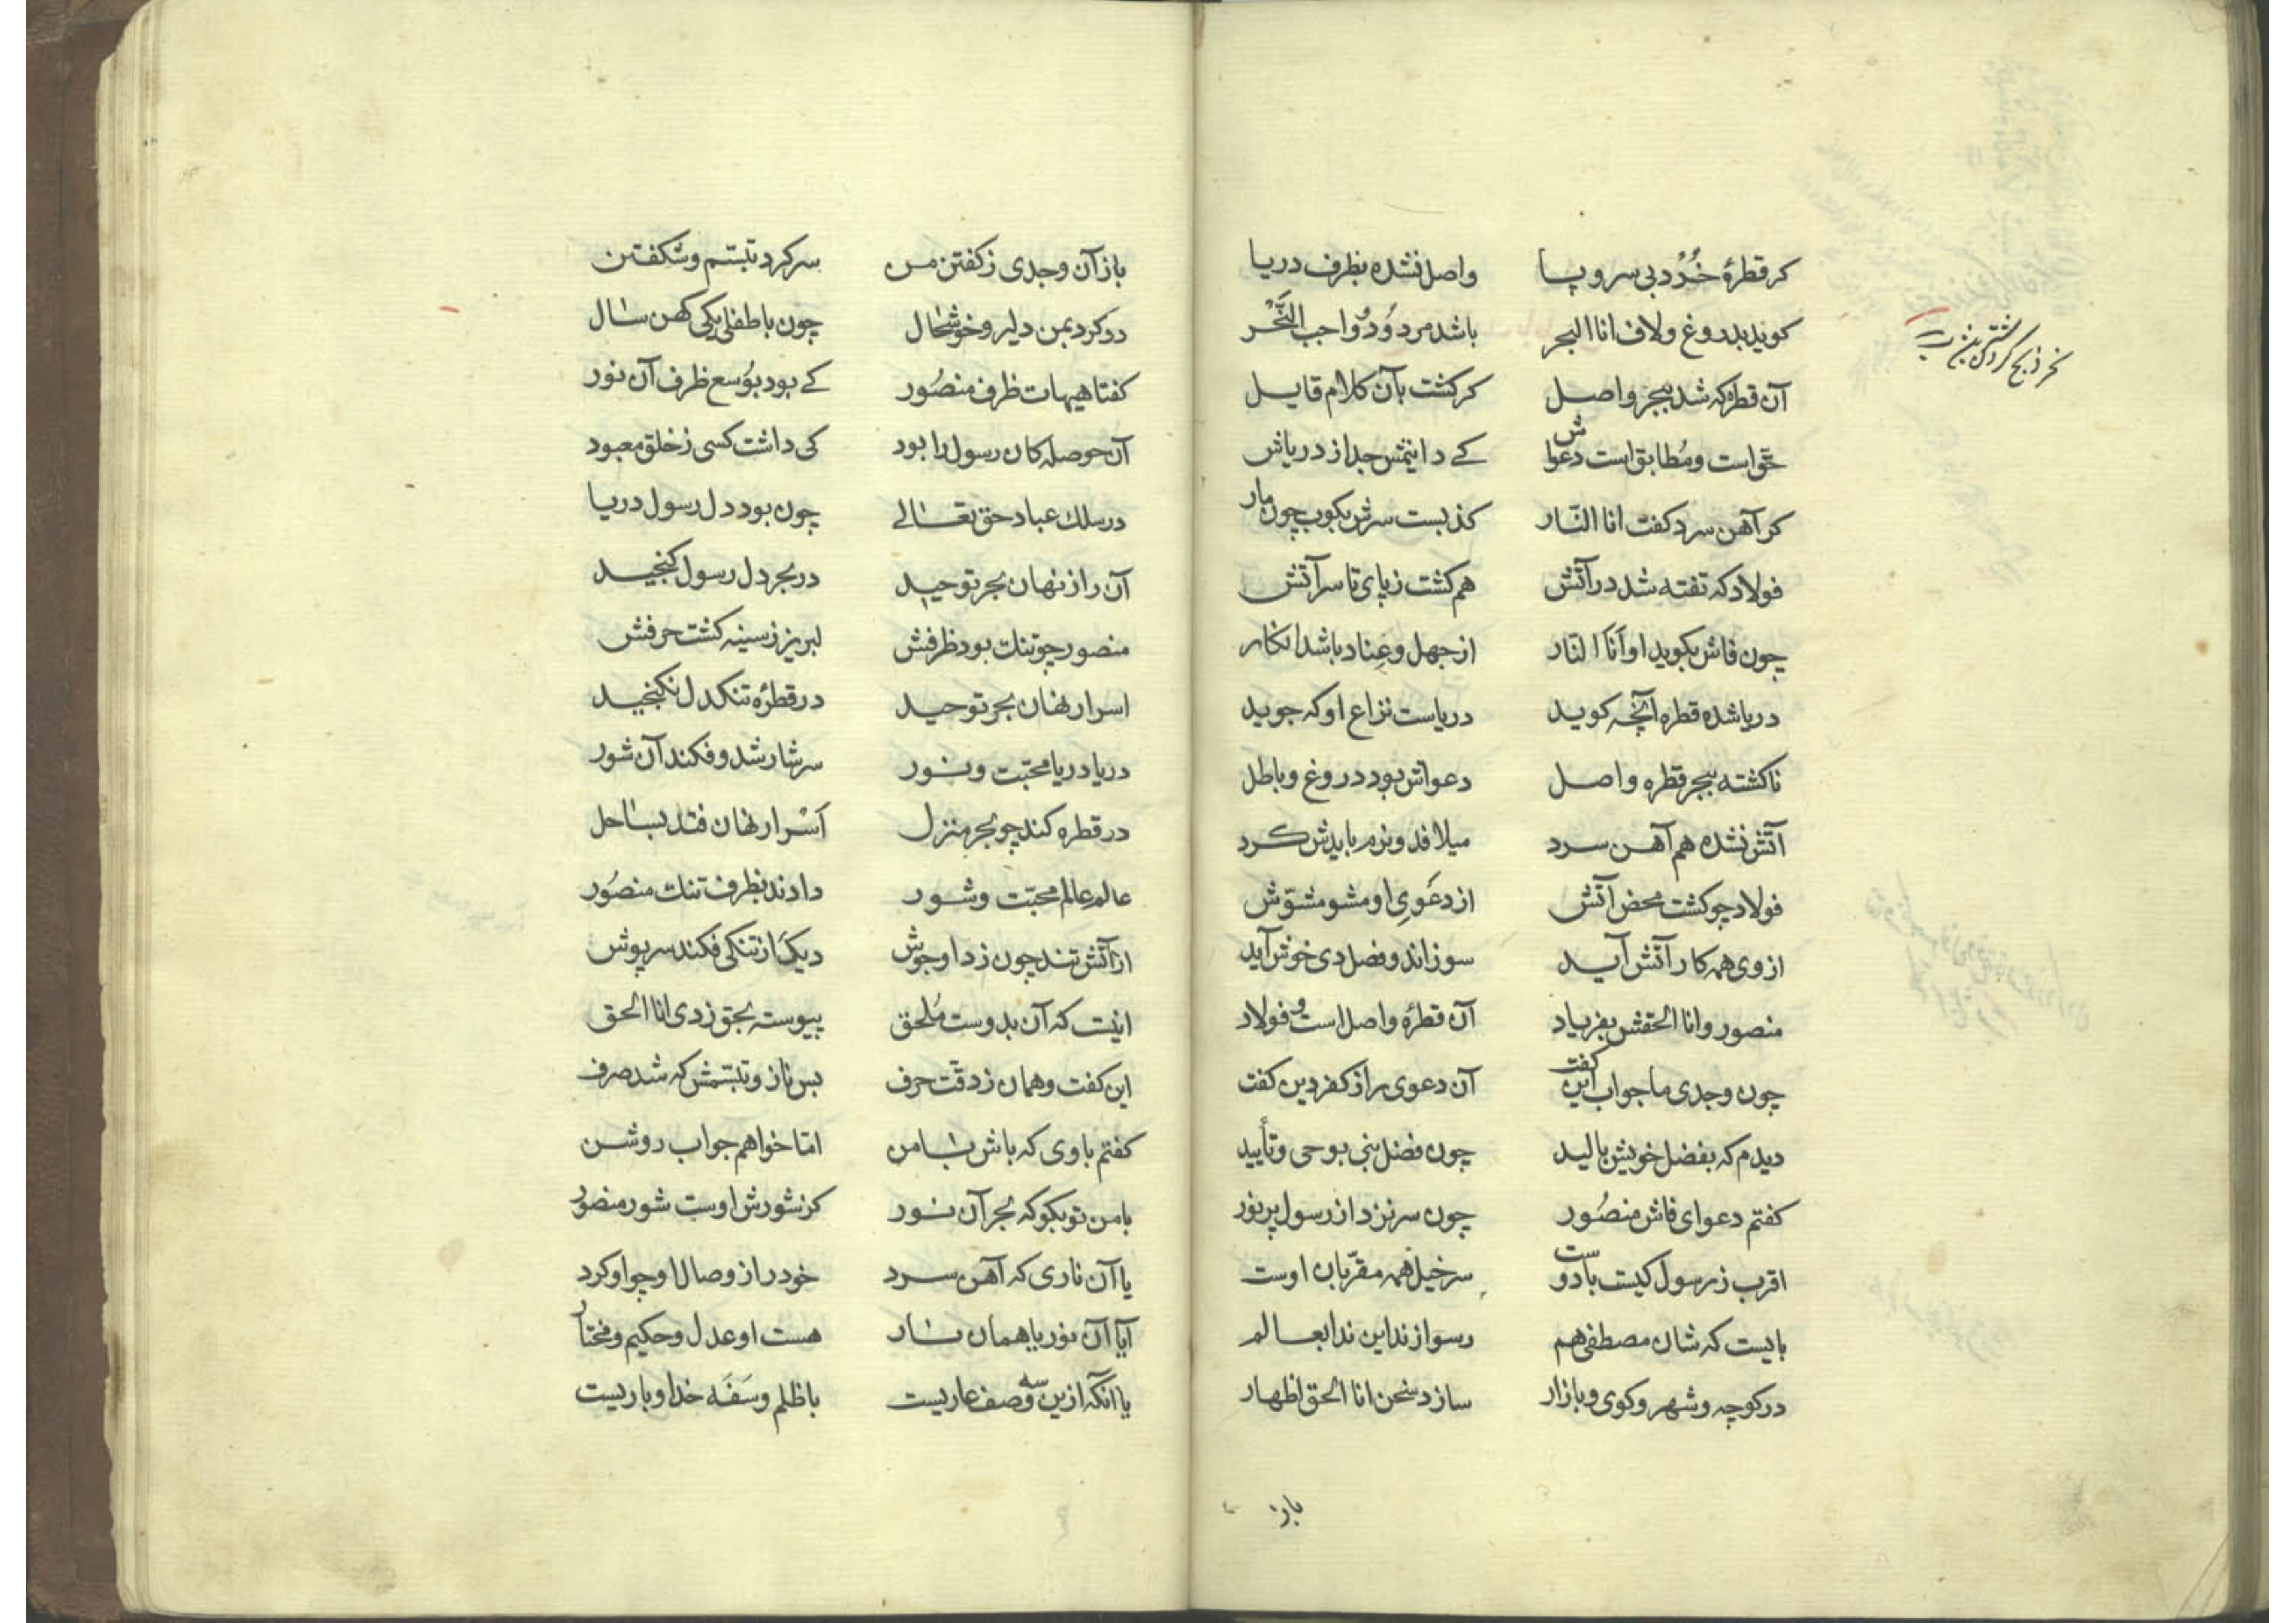 کر قطرهٔ خُرْد بی سر و پا واصل نشده بظرف دریا
کوید بدروغ ولاف انا البحر باشد مردود و واجب النَّحْر
نحر ذبح کردن شتر
آن قطره که شد ببحر واصل کر کشت بآن کلام قایل
حق است ومُطابق است دعواش کے دانیمش جدا ز دریاش
کر آهن سرد کفت انا النّار کذبست سرش بکوب چون مار
فولاد که تفته شد در آتش هم کشت ز پای تا سر آتش
چون فاش بکوید او اَنَا النار از جهل وعِناد باشد انکار
دریا شده قطره آنچه کوید دریاست نزاع او که جوید
ناکشته ببحر قطره واصل دعواش بود دروغ وباطل
آتش نشده هم آهن سرد میلافد ونرم بایدش کرد
فولاد چو کشت محض آتش از دعَویِ او مشو مشوّش
از وی همه کار آتش آید سوزاند وفصل دی خوش آید
منصور وانا الحقش بفریاد آن قطرهٔ واصل است و فولاد
چون وجدی ما جواب این کفت آن دعوی راز کفر دین کفت
دیدم که بفضل خویش بالید چون فضل نبی بوحی وتأیید
کفتم دعوای فاش منصُور چون سر نزد از رسول پر نور
اقرب ز رسول کیست با دوست سر خیل همه مقرّبان اوست
بایست که شان مصطفی هم رسوا زند این ندا بعالم
در کوچه وشهر وکوی وبازار سازد سخن انا الحق اظهار
باز
باز آن وجدی ز کفتن من سر کرد تبسّم وشکفتن
رو کرد بمن دلیر وخوشحال چون با طفلی یکی کهن سال
کفتا هیهات ظرف منصُور کے بود بوُسع ظرف آن نور
آن حوصله کان رسول را بود کی داشت کسی ز خلق معبود
در سلك عباد حق تعالے چون بود دل رسول دریا
آن راز نهان بحر توحید در بحر دل رسول کنجید
منصور چو تنك بود ظرفش لبریز ز سینه کشت حرفش
اسرار نهان بحر توحید در قطرهٔ تنکدل نکنجید
دریا دریا محبّت ونور سرشار شد وفکند آن شور
در قطره کند چو بحر منزل اَسْرار نهان فتد بساحل
عالم عالم محبّت وشور دادند بظرف تنك منصُور
از آتش تند چون زد او جوش دیک از تنکی فکند سرپوش
اینست که آن بدوست مُلحق پیوسته بحق زدی انا الحق
این کفت وهمان ز دقّت حرف بس ناز وتبسّمش که شد صرف
کفتم با وی که باش با من امّا خواهم جواب روشن
با من تو بکو که بحر آن نور کز شورش اوست شور منصور
یا آن ناری که آهن سرد خود را ز وصال او چو او کرد
آیا آن نور یا همان نار هست او عدل وحکیم ومختار
یا آنکه ازین سه وصف عاریست با ظلم وسَفَه خدا وباریست